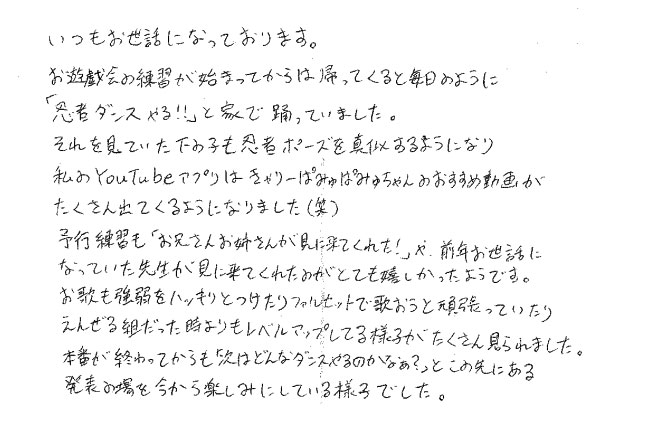 いつもお世話になっております。
お遊戯会の練習が始まってからは帰ってくると毎日のように
「忍者ダンスやる!!」と家で踊っていました。
それを見ていた下の子も忍者ポーズを真似するようになり
私のYouTubeアプリはきゃりーぱみゅぱみゅちゃんのおすすめ動画が
たくさん出てくるようになりました(笑)
予行練習も「お兄さんお姉さんが見に来てくれた!」や、前年お世話に
なっていた先生が見に来てくれたのがとても嬉しかったようです。
お歌も強弱をハッキリとつけたりファルセットで歌おうと頑張っていたり
えんぜる組だった時よりもレベルアップしてる様子がたくさん見られました。
本番が終わってからも「次はどんなダンスやるのかなぁ?」とこの先にある
発表の場を今から楽しみにしている様子でした。